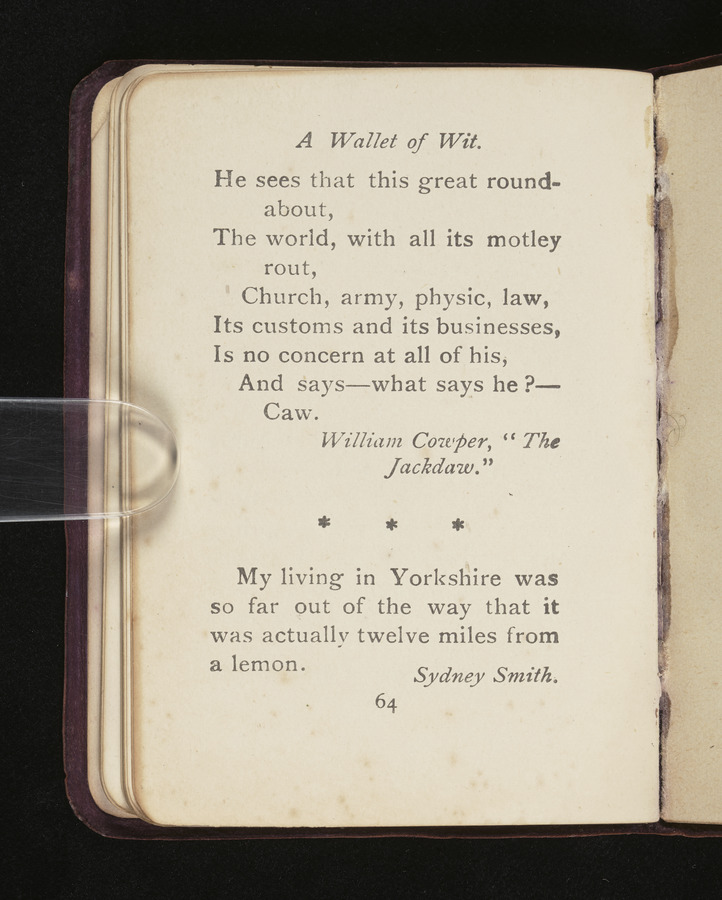 A Wallet of Wit.
He sees that this great round-
about,
The world, with all its motley
rout,
Church, army, physic, law,
Its customs and its businesses,
Is no concern at all of his,
And says—what says he?—
Caw.
William Cowper, “ The
Jackdaw.”
* * *
My living in Yorkshire was
so far out of the way that it
was actually twelve miles from
a lemon.
Sydney Smith.
64